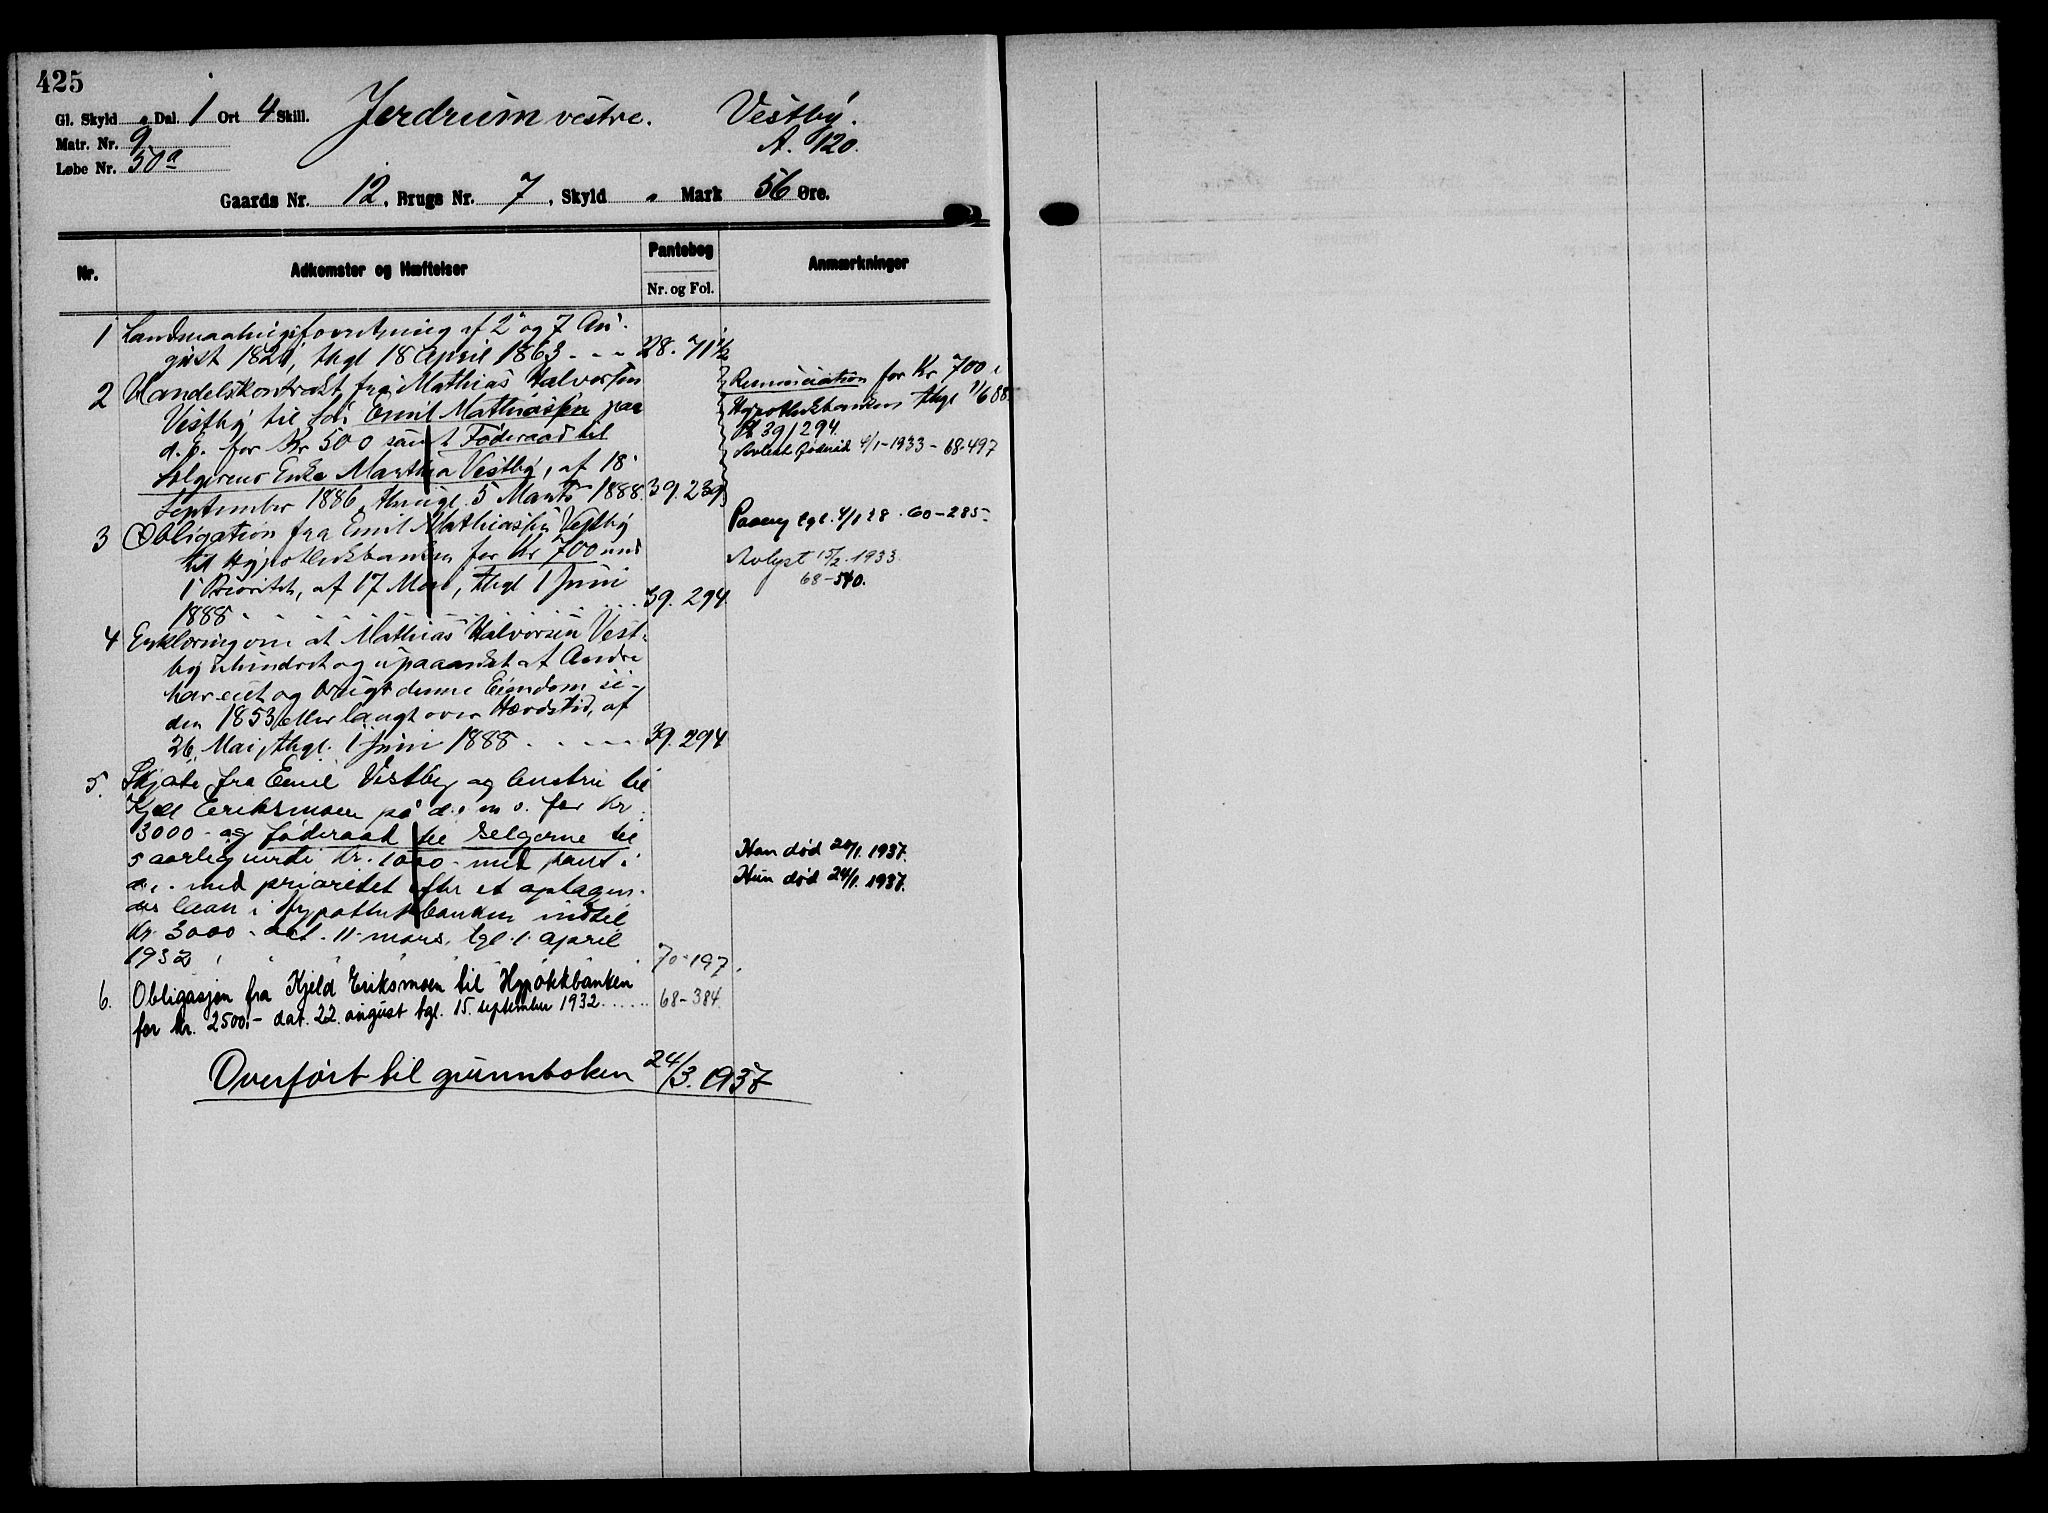 425
Gl. Skyld " Dal. 1 Ort 4 Skill. Jerdrum vestre. Vestby.
Matr. Nr. 9. A. 120.
Løbe Nr. 50a
Gaards Nr. 12, Brugs Nr. 7, Skyld " Mark 56 Øre.
Nr. Adkomster og Hæftelser Pantebog Anmærkninger
Nr. og Fol.
1 Landmaalingsforretning af 2 og 7 Au-
gust 1821, thgl 18 April 1863 - - - 28. 71 1/2
2 Handelskontrakt fra Mathias Halvorsen
Vestby til Emil Mathiassen paa
d. E. for Kr 500 samt Føderaad til
Selgerens Enke Marthea Vestby, af 18
September 1886, thingl. 5 Marts 1888. 39. 239
Renunciation for Kr 700 i
Hypothekbanken thgl 1/6 88
39/294.
Avlest føderåd 4/1-1933 - 68-497
3 Obligation fra Emil Mathiassen Vestby
til Hypothekbanken for Kr 700 mod
1 Prioritet, af 17 Mai, thgl 1 Juni
1888 - - - - 39. 294
tgl. 4/1 28 . 60-285-
Avlyst 15/2. 1933.
68-540.
4 Erklæring om at Mathias Halvorsen Vest-
by uhindret og upaaanket af Andre
har eiet og brugt denne Eiendom si-
den 1853 eller langt over Hævdstid, af
26 Mai, thgl. 1 Juni 1888 - - - - 39. 294
5. Skjøte fra Emil Vestby og hustru til
Kjell Eriksmoen på d. e. m. v. for kr.
3000 - og føderaad til selgerne til
5 aarlig verdi kr. 1000 - med pant i
d. e. med prioritet efter et optagen-
des laan i Hypotekbanken indtil
kr. 3000 - dat. 11 mars, tgl. 1. april
1932 " " " " 70-197.
Han død 20/1. 1937.
Hun død 24/1. 1937.
6. Obligasjon fra Kjeld Eriksmoen til Hypotekbanken
for kr. 2500.- dat. 22. august tgl. 15. september 1932 ...... 68-384
Overført til grunnboken 24/3. 1937